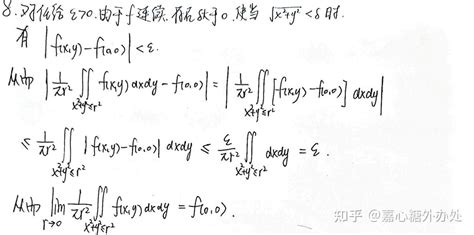 8. 对任给 ε>0. 由于 f 连续. 存在 δ大于0, 使当 √x²+y² < δ 时.
有 |f(x,y)-f(0,0)| < ε.
从而 |1/πr² ∬_{x²+y²≤r²} f(x,y) dxdy - f(0,0)| = |1/πr² ∬_{x²+y²≤r²} [f(x,y)-f(0,0)] dxdy|
≤ 1/πr² ∬_{x²+y²≤r²} |f(x,y)-f(0,0)| dxdy ≤ ε/πr² ∬_{x²+y²≤r²} dxdy = ε.
从而 lim_{r→0} 1/πr² ∬_{x²+y²≤r²} f(x,y) dxdy = f(0,0).
知乎 @嘉心糖外办处